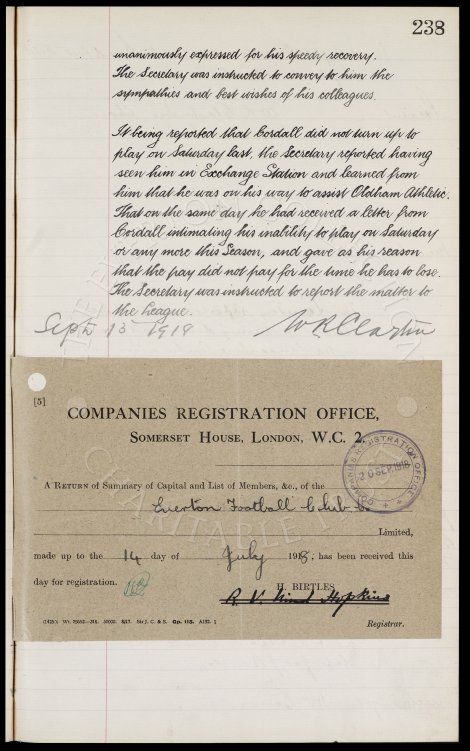 238
unanimously expressed for his speedy recovery.
The Secretary was instructed to convey to him the
sympathies and best wishes of his colleagues.
It being reported that Cordall did not turn up to
play on Saturday last, the Secretary reported having
seen him in Exchange Station and learned from
him that he was on his way to assist Oldham Athletic.
That on the same day he had received a letter from
Cordall intimating his inability to play on Saturday
or any more this Season, and gave as his reason
that the pay did not pay for the time he has to lose.
The Secretary was instructed to report the matter to
the League.
Sept 13 1918 W R Clayton
[5]
COMPANIES REGISTRATION OFFICE,
SOMERSET HOUSE, LONDON, W.C. 2.
COMPANIES REGISTRATION OFFICE
20 SEP 1918
A RETURN of Summary of Capital and List of Members, &c., of the
Everton Football Club Co
Limited,
made up to the 14 day of July 1918; has been received this
day for registration.
H. BIRTLES
R. V. Nind Hopkins
Registrar.
Sir J. C. & S. Gp. 113.
THE EVERTON
CHARITABLE